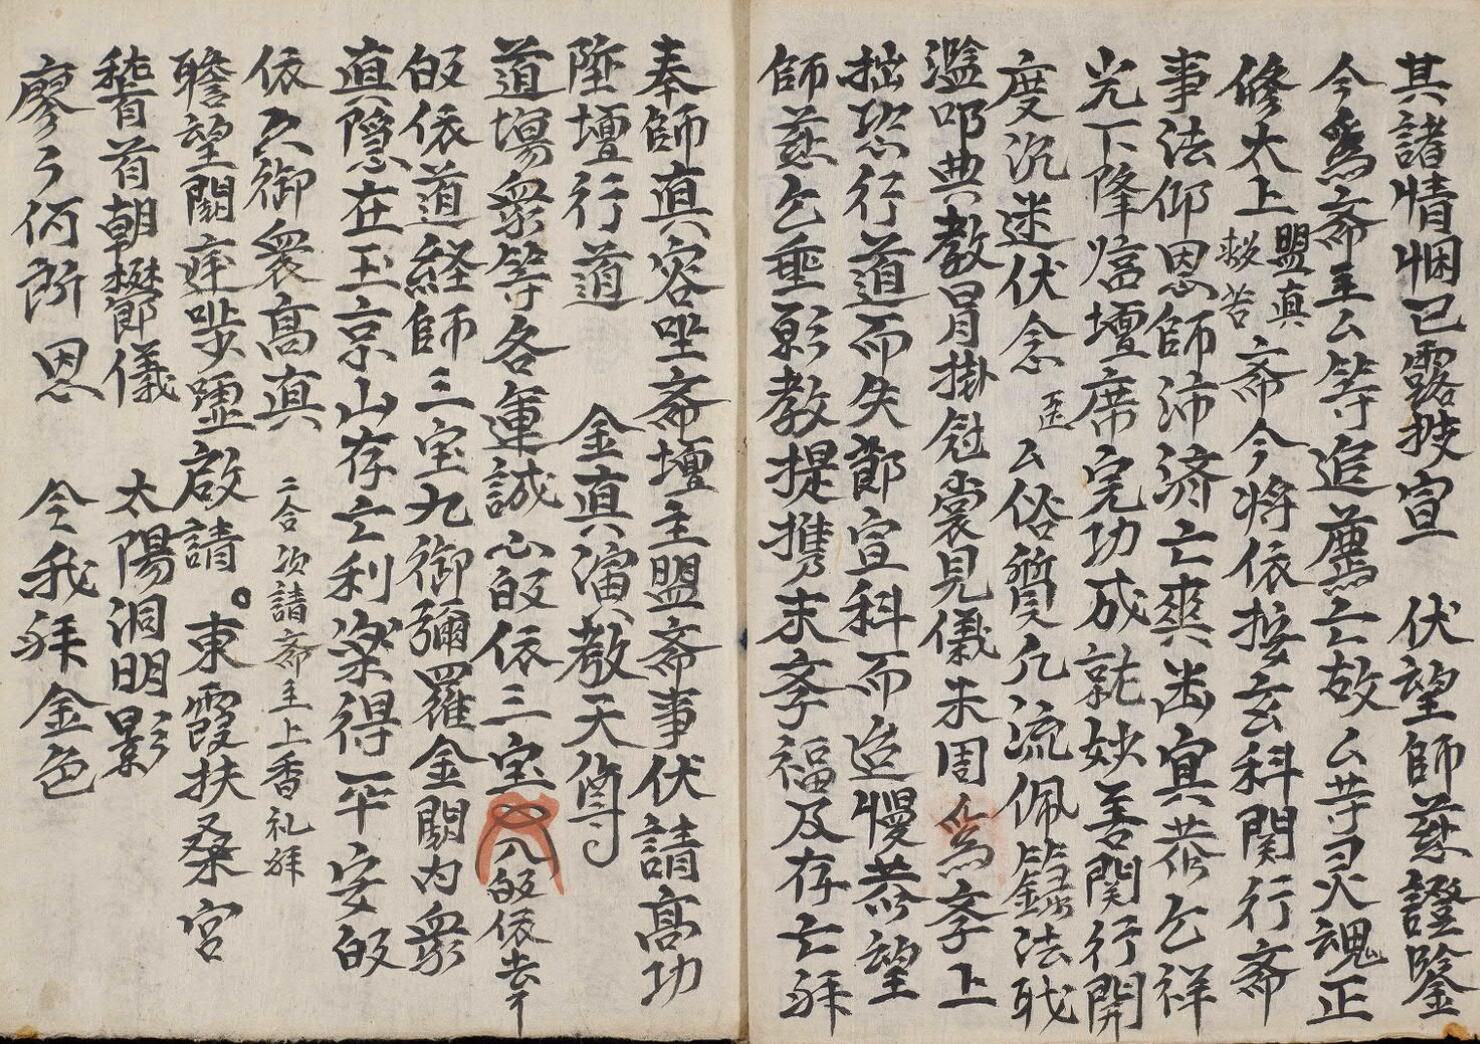 其諸情悃已露披宣　伏望師慈證鑒
今為斋主厶等追薦亡故厶等灵魂正
修太上盟真救苦斋今将依按玄科関行斋
事法仰恩師沛済亡爽幽冥恭乞祥
光下降㝢壇席完功成就妙善関行開
度沉迷伏念臣厶俗質凢流佩籙法職
濫叨典教冒掛冠裳見儀未周為孝上
拙恐行道而失節宣科而迨慢恭望
師慈乞垂影教提携末季福及存亡拜
奉師真容坐斋壇主盟斋事伏請高功
陞壇行道　金真演教天尊
道場衆等各運誠心皈依三宝　八皈依岩举
皈依道経師三宝九御彌羅金闕内衆
真隠在玉京山存亡利楽得平安皈
依大御衆高真　二合次請斋主上香礼拜
瞻望闕庭步歪啟請。東霞扶桑宮
稽首朝礬節儀　太陽洞明景
廖了何所恩　今我拜金色